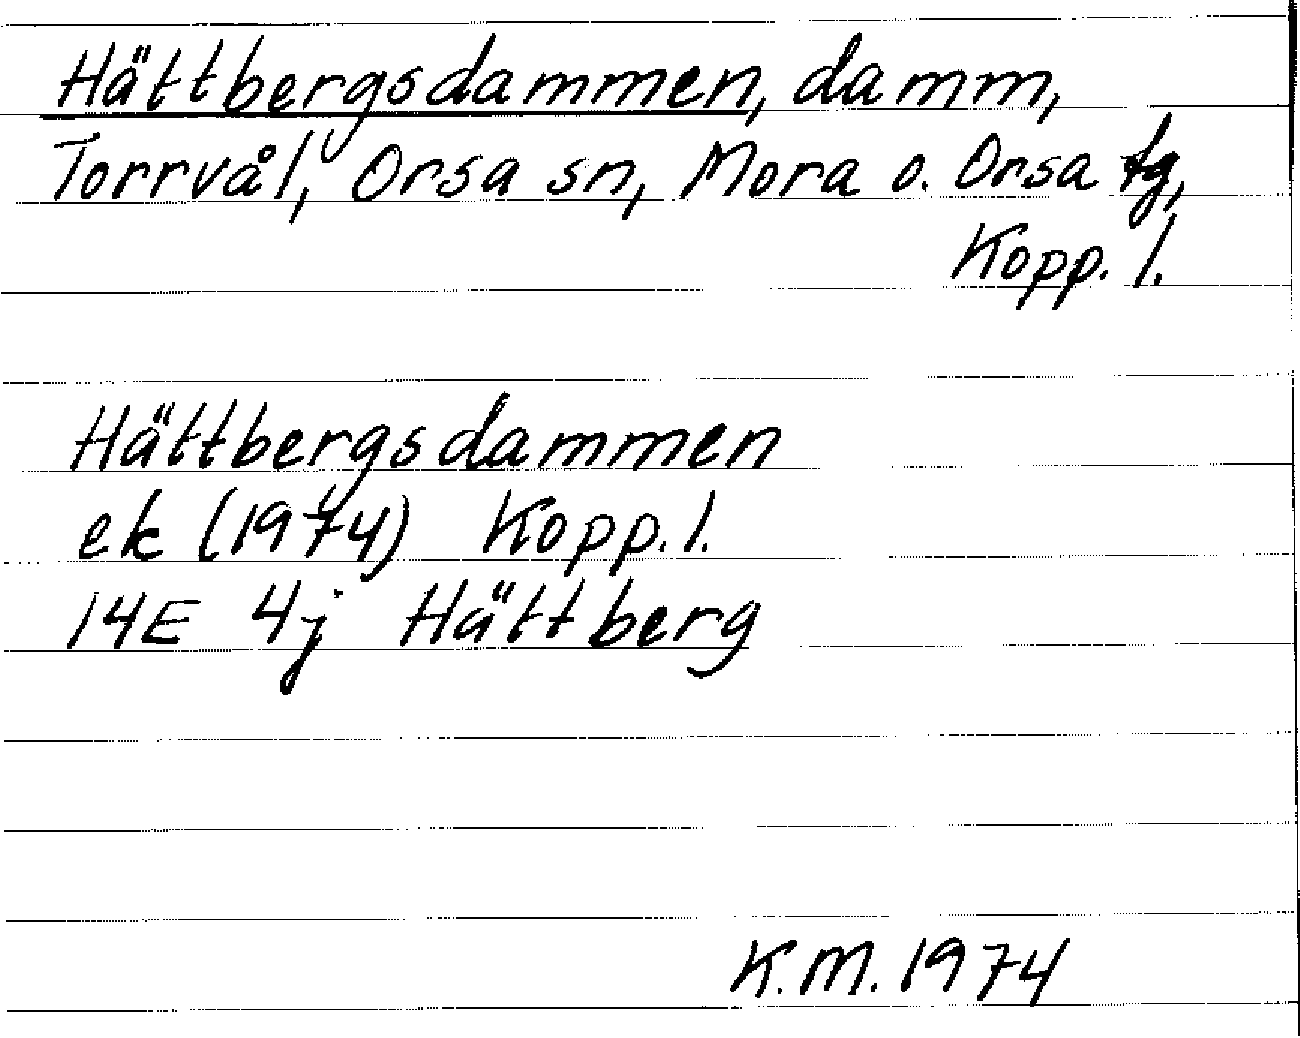 Hättbergsdammen, damm,
Torrvål, Orsa sn, Mora o. Orsa tg,
Kopp. l.
Hättbergsdammen
ek (1974) Kopp. l.
14E 4j Hättberg
K.M. 1974